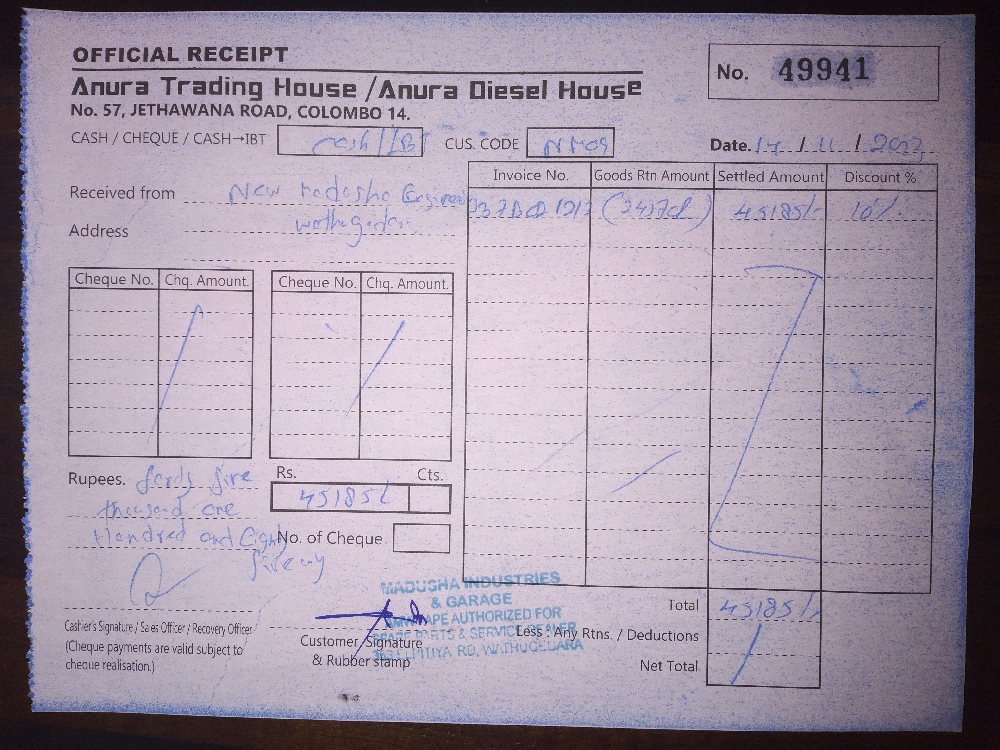 OFFICIAL RECEIPT
Anura Trading House / Anura Diesel House
No. 49941
No. 57, JETHAWANA ROAD, COLOMBO 14.
CASH / CHEQUE / CASH→IBT Cash / CUS. CODE
Date. 14 / 11 / 2023
Invoice No. Goods Rtn Amount Settled Amount Discount %
Received from New
45185/- 10%
Address
Cheque No. Chq. Amount. Cheque No. Chq. Amount.
Rupees. forty five
thousand one
Hundred and
Rs. Cts.
45185/-
No. of Cheque
MADUSHA INDUSTRIES
& GARAGE
AUTHORIZED FOR
SPARE PARTS & SERVICE DEALER
RD, WATHUGEDARA
Total 45185/-
Less : Any Rtns. / Deductions
Net Total
Cashier's Signature / Sales Officer / Recovery Officer
(Cheque payments are valid subject to
cheque realisation.)
Customer Signature
& Rubber stamp